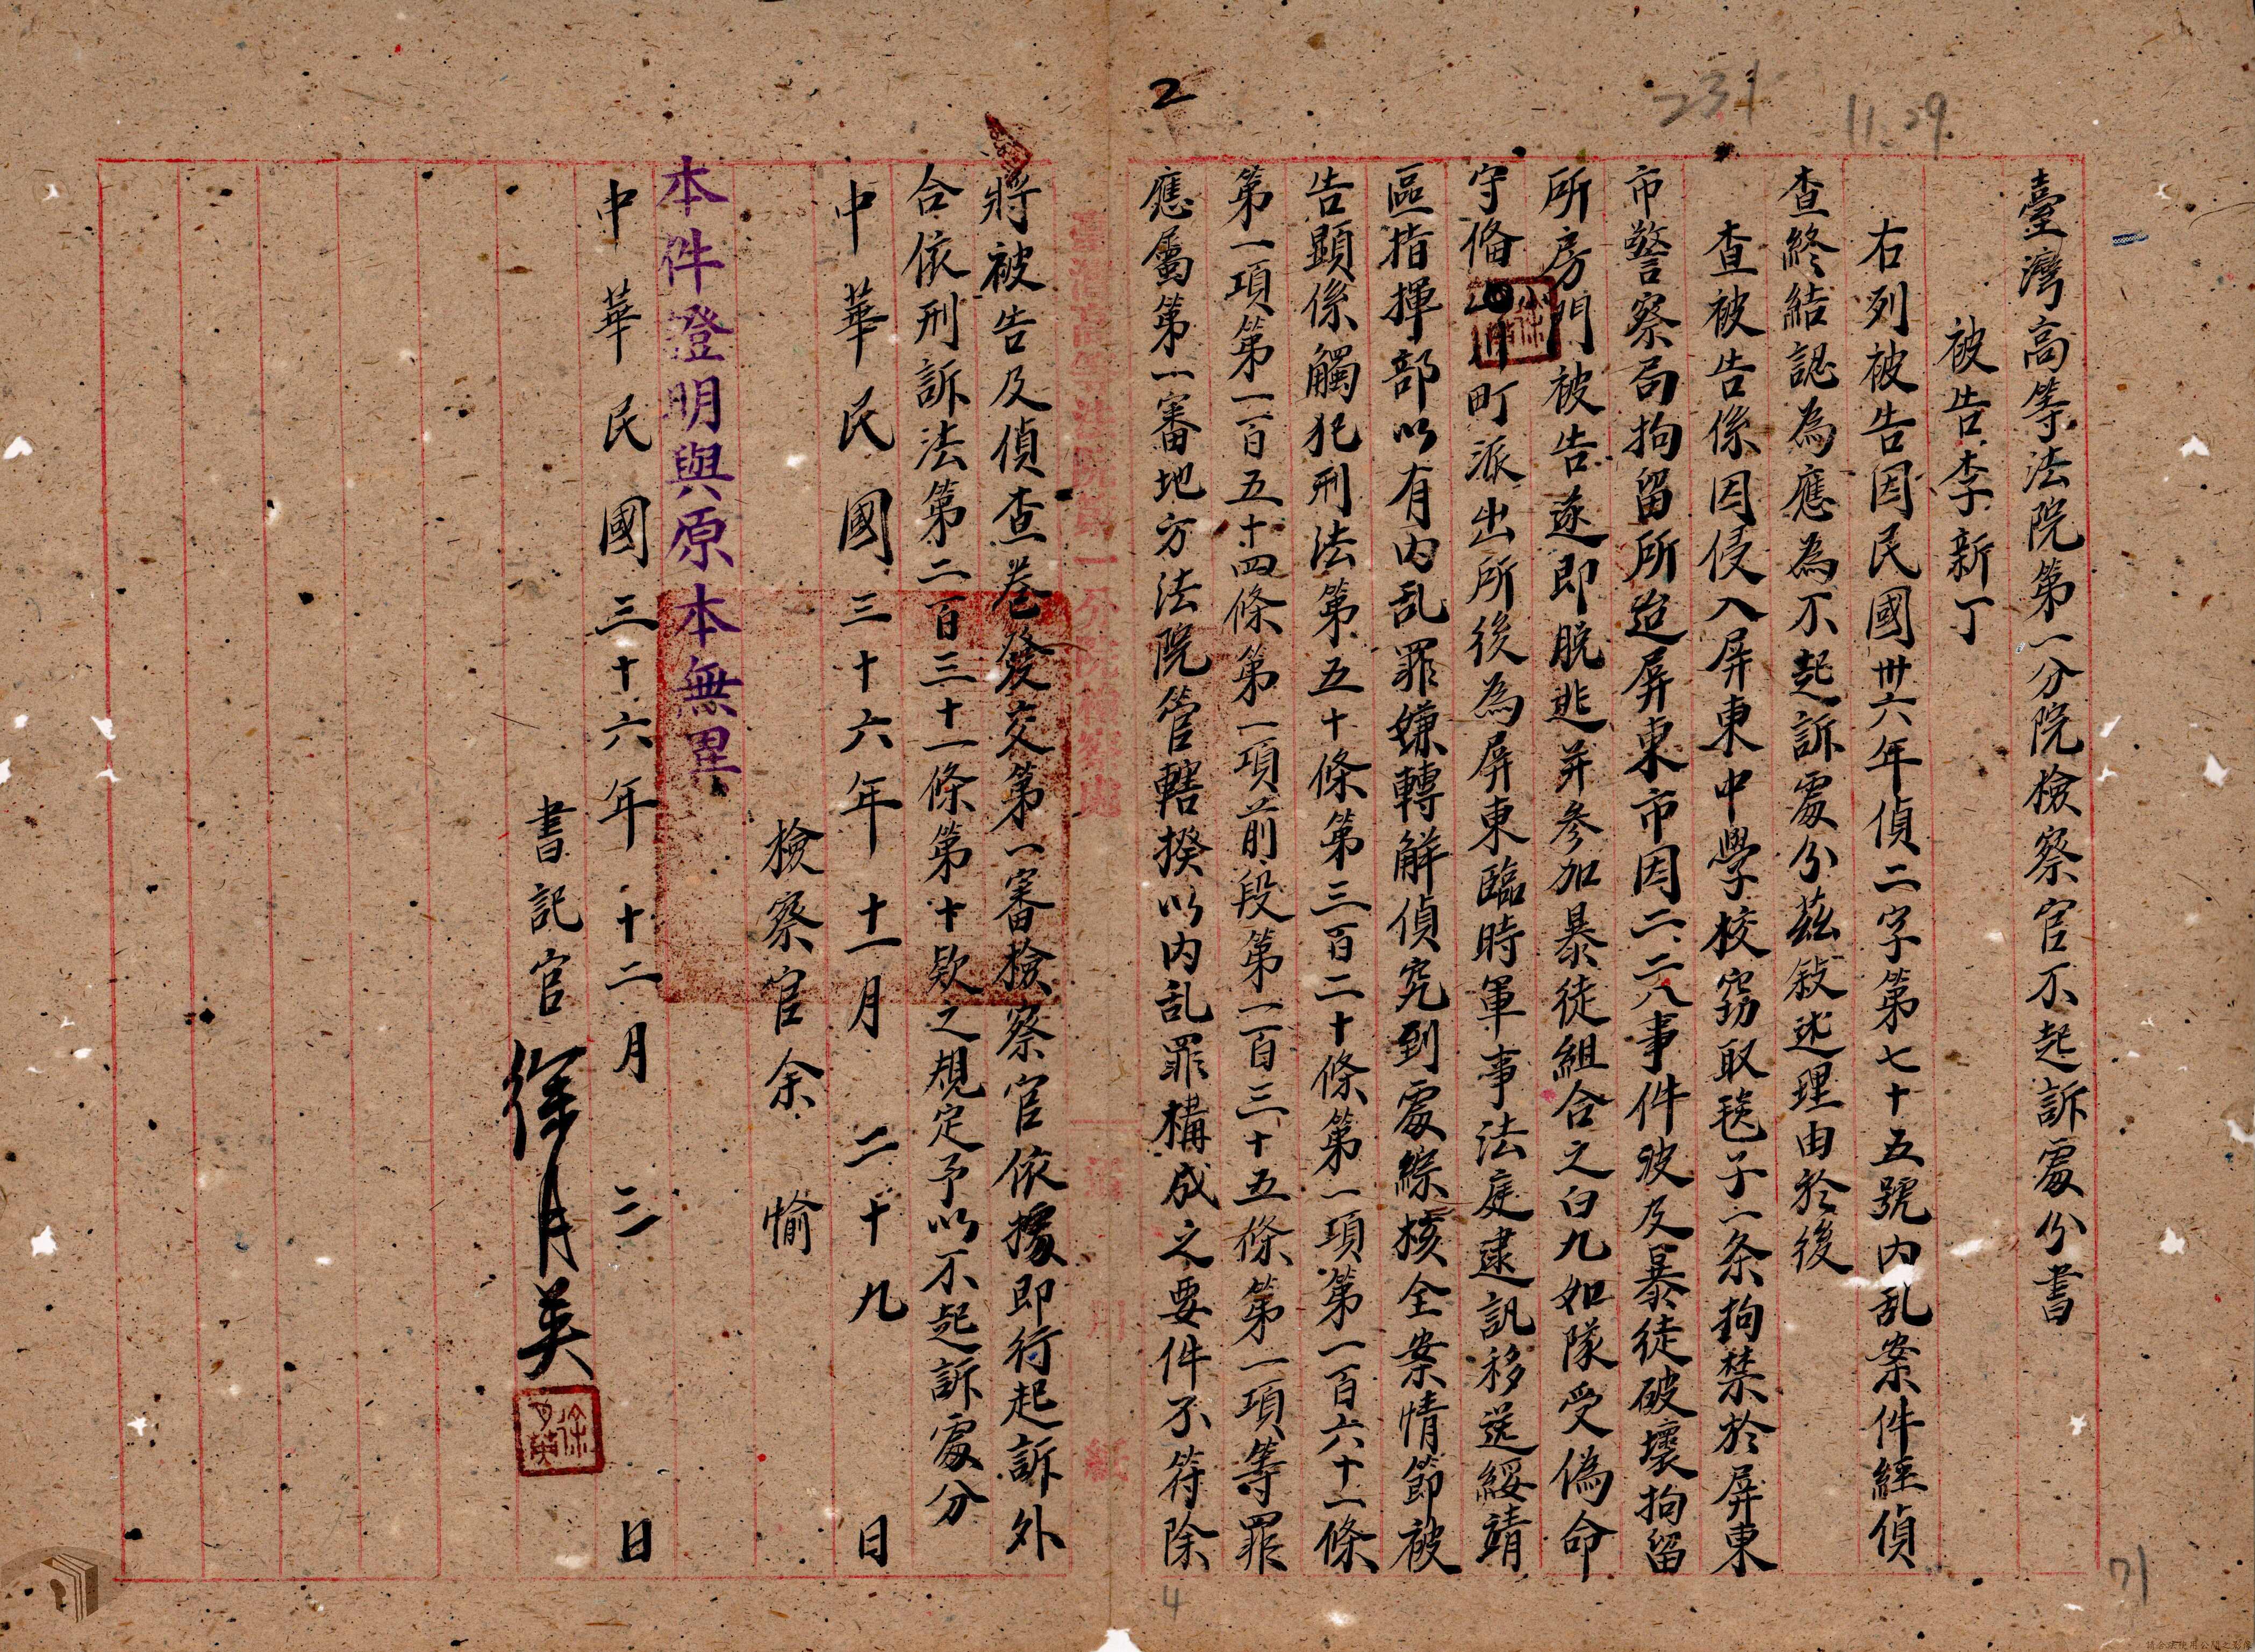 臺灣高等法院第一分院檢察官不起訴處分書
被告李新丁
右列被告因民國卅六年偵二字第七十五號內乱案件經偵
查終結認為應為不起訴處分茲敍述理由於後
查被告係因侵入屏東中學校竊取毯子一条拘禁於屏東
市警察局拘留所迨屏東市因二二八事件波及暴徒破壞拘留
所房門被告遂即脫逃并參加暴徒組合之白九如隊受偽命
守備川町派出所後為屏東臨時軍事法庭逮訊移送綏靖
區指揮部以有內乱罪嫌轉解偵究到處綜核全案情節被
告顯係觸犯刑法第五十條第三百二十條第一項第一百六十一條
第一項第一百五十四條第一項前段第一百三十五條第一項等罪
應屬第一審地方法院管轄揆以內乱罪構成之要件不符除
將被告及偵查卷發交第一審檢察官依據即行起訴外
合依刑訴法第二百三十一條第十欵之規定予以不起訴處分
中華民國三十六年十一月二十九日
檢察官余愉
本件證明與原本無異
中華民國三十六年十二月三日
書記官徐月英
徐月英
2
231
11.29
71
4